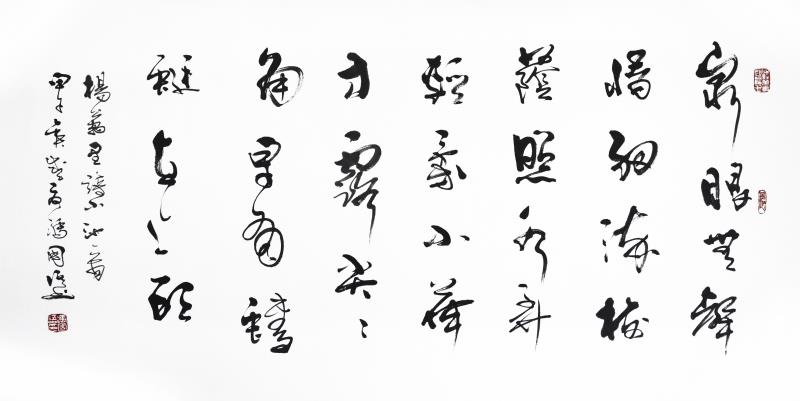 泉眼無聲
惜細流樹
蔭照水弄
輕柔小荷
才露尖々
角早有蜻
蜓立上頭
楊萬里詩小池一首
甲午 國